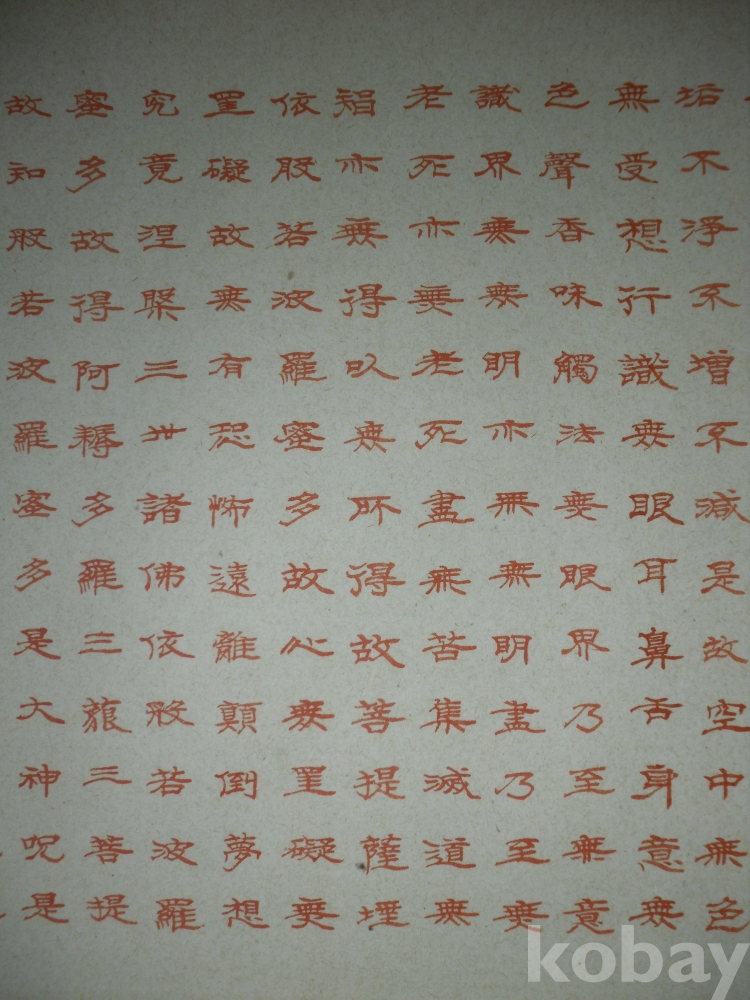 垢不淨不增不減是故空中無色
無受想行識無眼耳鼻舌身意無
色聲香味觸法無眼界乃至無意
識界無無明亦無無明盡乃至無
老死亦無老死盡無苦集滅道無
智亦無得以無所得故菩提薩埵
依般若波羅蜜多故心無罣礙無
罣礙故無有恐怖遠離顛倒夢想
究竟涅槃三世諸佛依般若波羅
蜜多故得阿耨多羅三藐三菩提
故知般若波羅蜜多是大神呪是
kobay